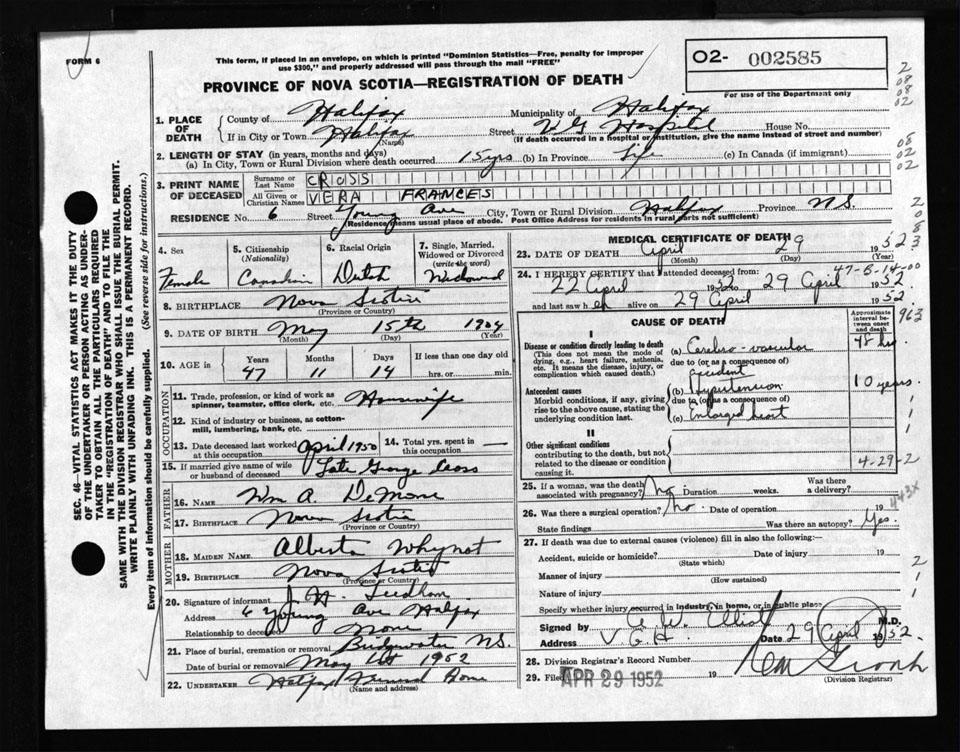 FORM 6
This form, if placed in an envelope, on which is printed "Dominion Statistics—Free, penalty for improper
use $300," and properly addressed will pass through the mail "FREE"
PROVINCE OF NOVA SCOTIA—REGISTRATION OF DEATH
O2- 002585
For use of the Department only
2 08 08 02
1. PLACE OF DEATH
County of Halifax Municipality of Halifax
If in City or Town Halifax Street V G Hospital House No.
(Name) (If death occurred in a hospital or institution, give the name instead of street and number)
2. LENGTH OF STAY (in years, months and days)
(a) In City, Town or Rural Division where death occurred 15 yrs (b) In Province Life (c) In Canada (if immigrant)
08 02 02
3. PRINT NAME OF DECEASED
Surname or Last Name CROSS
All Given or Christian Names VERA FRANCES
RESIDENCE No. 6 Street Young Ave City, Town or Rural Division Halifax Province N.S.
(Residence means usual place of abode. Post Office Address for residents in rural parts not sufficient)
4. Sex Female
5. Citizenship (Nationality) Canadian
6. Racial Origin Dutch
7. Single, Married, Widowed or Divorced (write the word) Widowed
8. BIRTHPLACE Nova Scotia
(Province or Country)
9. DATE OF BIRTH May 15th 1904
(Month) (Day) (Year)
10. AGE in Years 47 Months 11 Days 14 If less than one day old hrs. or min.
OCCUPATION
11. Trade, profession, or kind of work as spinner, teamster, office clerk, etc. Housewife
12. Kind of industry or business, as cotton-mill, lumbering, bank, etc.
13. Date deceased last worked at this occupation April 1950
14. Total yrs. spent in this occupation —
15. If married give name of wife or husband of deceased Late George Cross
FATHER
16. NAME Wm A. DeMone
17. BIRTHPLACE Nova Scotia
(Province or Country)
MOTHER
18. MAIDEN NAME Alberta Whynot
19. BIRTHPLACE Nova Scotia
(Province or Country)
20. Signature of informant
Address 6 Young Ave Halifax
Relationship to deceased None
21. Place of burial, cremation or removal Bridgewater N.S.
Date of burial or removal May 1st 1952
22. UNDERTAKER Halifax Funeral Home
(Name and address)
MEDICAL CERTIFICATE OF DEATH
23. DATE OF DEATH April 29 1952 3
(Month) (Day)
24. I HEREBY CERTIFY that I attended deceased from: 47-5-14-00
22 April 1952 to 29 April 1952
and last saw her alive on 29 April 1952.
CAUSE OF DEATH
Approximate interval between onset and death
963
I
Disease or condition directly leading to death
(This does not mean the mode of dying, e.g., heart failure, asthenia, etc. It means the disease, injury, or complication which caused death.)
(a) Cerebro-vascular 48 hrs
due to (or as a consequence of)
accident
Antecedent causes
Morbid conditions, if any, giving rise to the above cause, stating the underlying condition last.
(b) Hypertension 10 years.
due to (or as a consequence of)
(c) Enlarged heart
II
Other significant conditions
contributing to the death, but not related to the disease or condition causing it.
4-29-2
25. If a woman, was the death associated with pregnancy? No. Duration weeks. Was there a delivery?
26. Was there a surgical operation? No. Date of operation 19
443X
State findings Was there an autopsy? Yes.
27. If death was due to external causes (violence) fill in also the following:
Accident, suicide or homicide? Date of injury 19
(State which)
Manner of injury
(How sustained)
Nature of injury
Specify whether injury occurred in industry, in home, or in public place
Signed by M.D.
Address V.G.H. Date 29 April 1952
28. Division Registrar's Record Number
29. Filed APR 29 1952 19
(Division Registrar)
SEC. 46—VITAL STATISTICS ACT MAKES IT THE DUTY
OF THE UNDERTAKER OR PERSON ACTING AS UNDER-
TAKER TO OBTAIN ALL THE PARTICULARS REQUIRED
IN THE "REGISTRATION OF DEATH" AND TO FILE THE
SAME WITH THE DIVISION REGISTRAR WHO SHALL ISSUE THE BURIAL PERMIT.
WRITE PLAINLY WITH UNFADING INK. THIS IS A PERMANENT RECORD.
Every item of information should be carefully supplied. (See reverse side for instructions.)